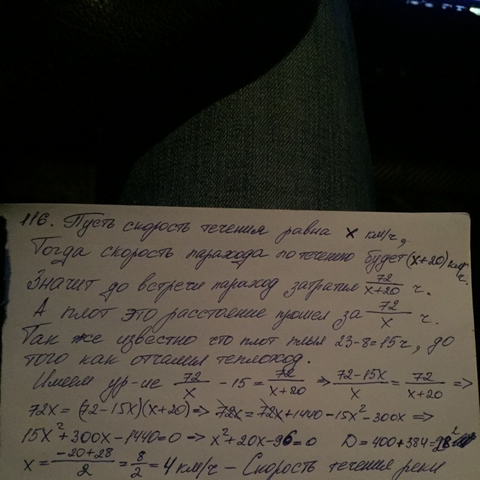 116. Пусть скорость течения равна x км/ч,
Тогда скорость парахода по течению будет (x+20) км/ч.
Значит до встречи параход затратил 72/(x+20) ч.
А плот это расстояние прошел за 72/x ч.
Так же известно что плот плыл 23-8=15ч, до
того как отчалил теплоход.
Имеем ур-ие 72/x - 15 = 72/(x+20) => (72-15x)/x = 72/(x+20) =>
72x = (72-15x)(x+20) => 72x = 72x+1440-15x²-300x =>
15x²+300x-1440=0 => x²+20x-96=0 D=400+384=28²
x = (-20+28)/2 = 8/2 = 4 км/ч - Скорость течения реки